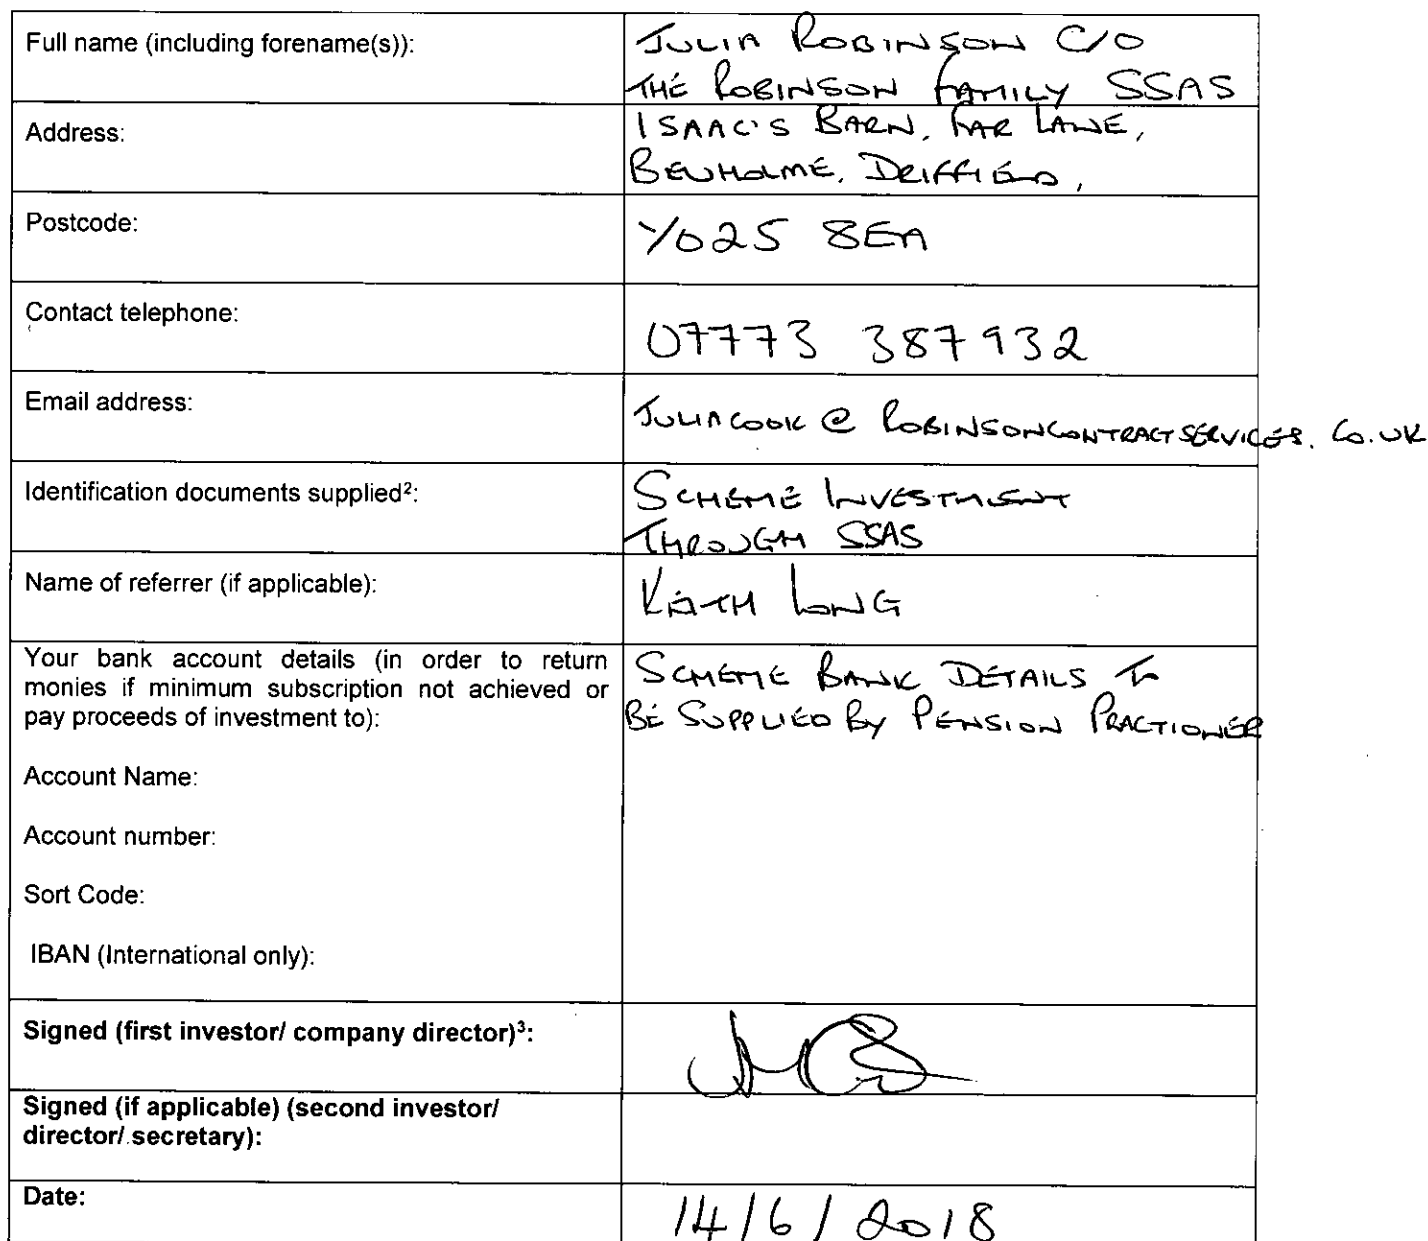 Full name (including forename(s)):
JULIA ROBINSON C/O
THE ROBINSON FAMILY SSAS
Address:
ISAAC'S BARN, FAR LANE,
BEWHOLME, DRIFFIELD,
Postcode:
YO25 8EA
Contact telephone:
07773 387932
Email address:
JULIACOOK@ROBINSONCONTRACTSERVICES.CO.UK
Identification documents supplied²:
SCHEME INVESTMENT
THROUGH SSAS
Name of referrer (if applicable):
KEITH LONG
Your bank account details (in order to return
monies if minimum subscription not achieved or
pay proceeds of investment to):
SCHEME BANK DETAILS TO
BE SUPPLIED BY PENSION PRACTIONER
Account Name:
Account number:
Sort Code:
IBAN (International only):
Signed (first investor/ company director)³:
Signed (if applicable) (second investor/
director/ secretary):
Date:
14/6/2018